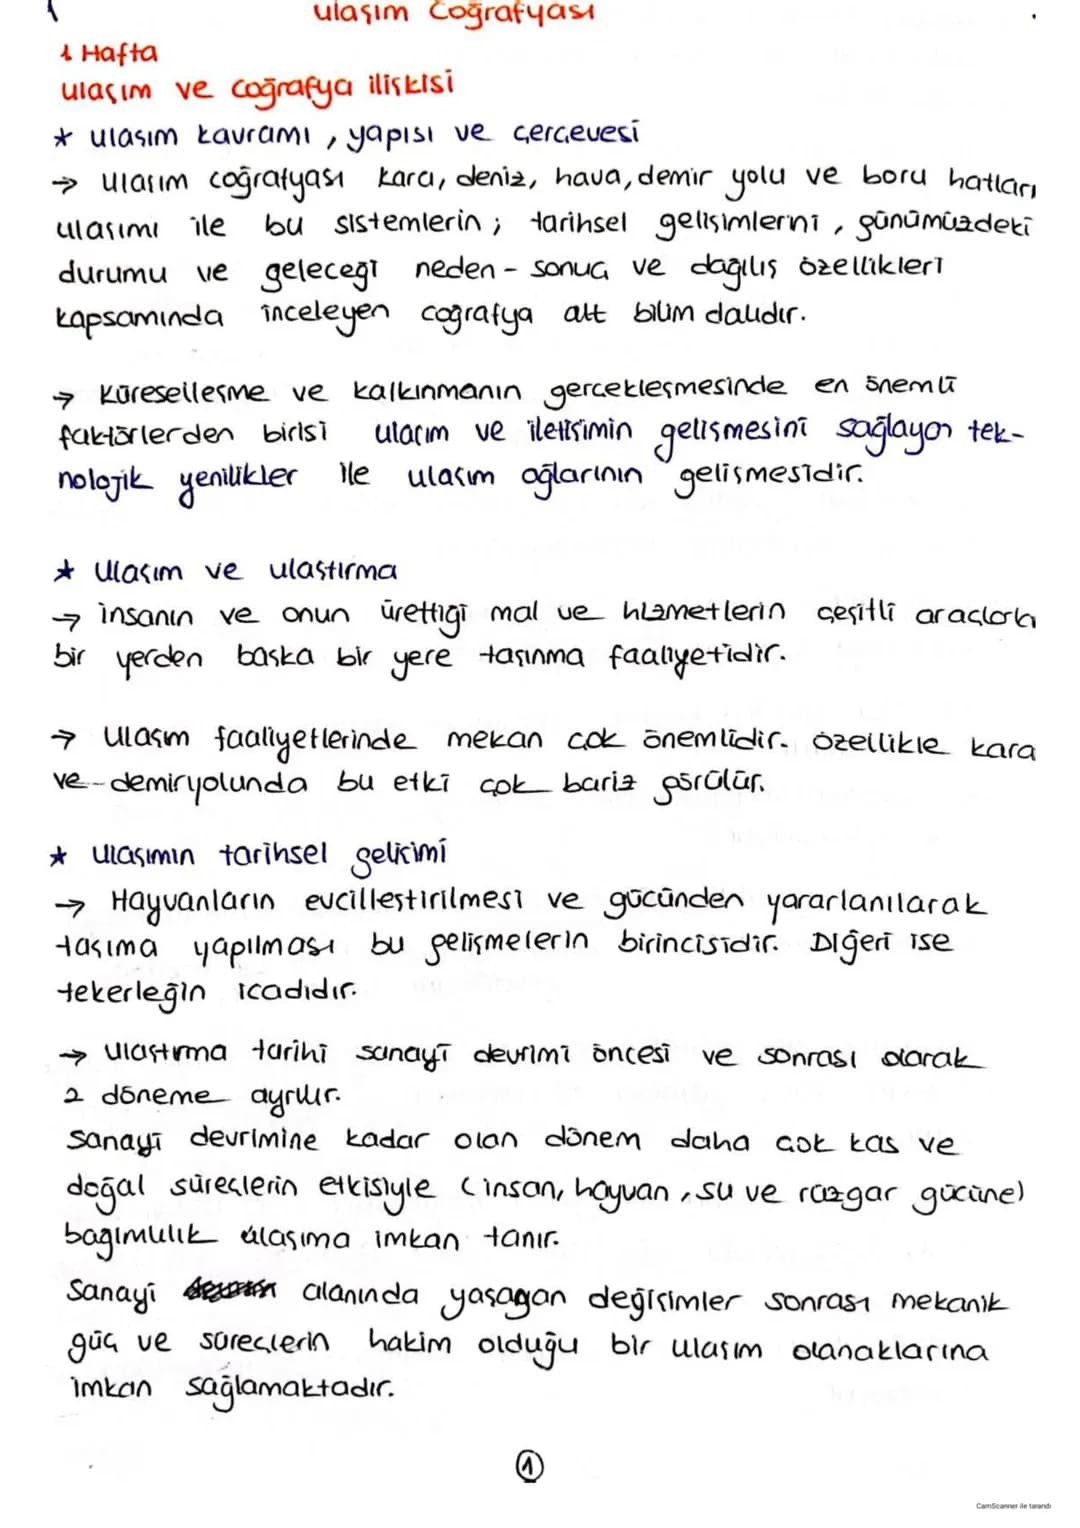 ulaşım Coğrafyası
1 Hafta
ulaşım ve coğrafya ilişkisi
* ulaşım kavramı, yapısı ve çerçevesi
→ ulaşım coğrafyası kara, deniz, hava, demir yolu ve boru hatları
ulaşımı ile bu sistemlerin; tarihsel gelişimlerini, günümüzdeki
durumu ve geleceği neden-sonuç ve dağılış özellikleri
kapsamında inceleyen coğrafya alt bilim dalıdır.
→ Küreselleşme ve kalkınmanın gerçekleşmesinde en önemli
faktörlerden birisi ulaşım ve iletişimin gelişmesini sağlayan tek-
nolojik yenilikler ile ulaşım ağlarının gelişmesidir.
* Ulaşım ve ulaştırma
→ insanın ve onun ürettiği mal ve hizmetlerin çeşitli araçlarla
bir yerden başka bir yere taşınma faaliyetidir.
→ Ulaşım faaliyetlerinde mekan çok önemlidir. özellikle kara
ve demiryolunda bu etki çok bariz görülür.
* Ulaşımın tarihsel gelişimi
→ Hayvanların evcilleştirilmesi ve gücünden yararlanılarak
taşıma yapılması bu gelişmelerin birincisidir. Diğeri ise
tekerleğin icadıdır.
→ Ulaştırma tarihi sanayi devrimi öncesi ve sonrası olarak
2 döneme ayrılır.
Sanayi devrimine kadar olan dönem daha çok kas ve
doğal süreçlerin etkisiyle (insan, hayvan, su ve rüzgar gücüne)
bağımlılık ulaşıma imkan tanır.
Sanayi alanında yaşagan değişimler sonrası mekanik
güç ve süreçlerin hakim olduğu bir ulaşım olanaklarına
imkan sağlamaktadır.
1
CamScanner ile tarandı